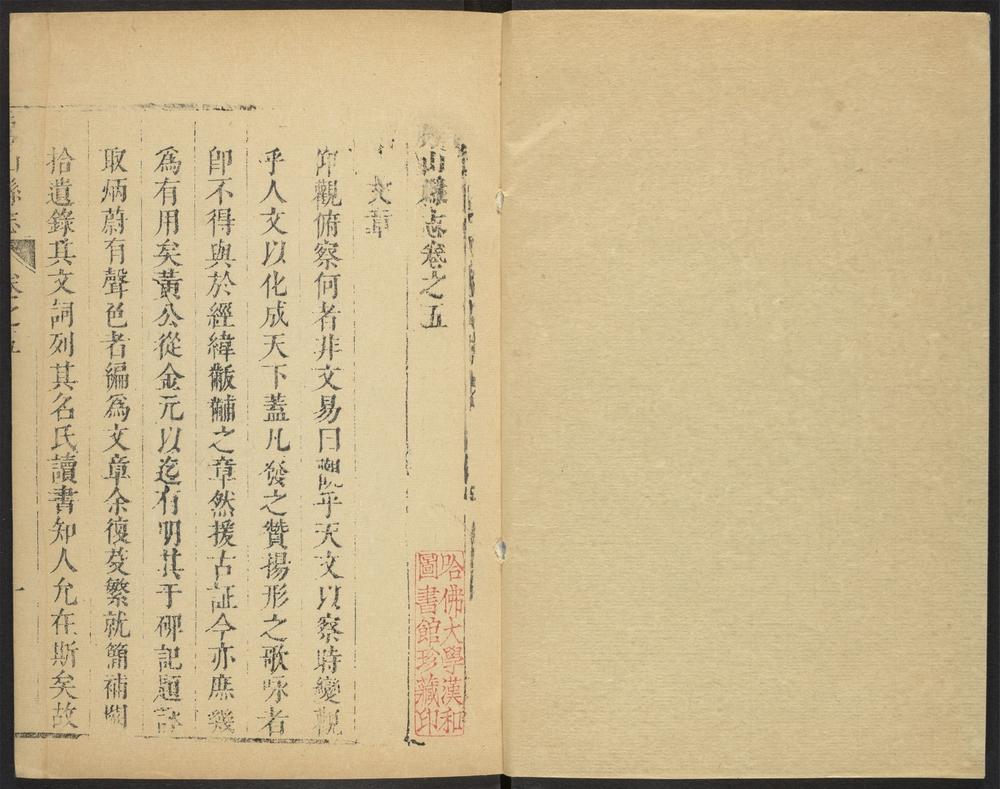 山縣志卷之五
文章
仰觀俯察何者非文易曰觀乎天文以察時變觀
乎人文以化成天下蓋凡發之贊揚形之歌咏者
即不得與於經緯黻黼之章然援古証今亦庶幾
為有用矣黃公從金元以迄有明其于碑記題詠
取炳蔚有聲色者編為文章余復芟繁就簡補闕
拾遺錄其文詞列其名氏讀書知人允在斯矣故
山縣志
卷之五
一
哈佛大學漢和
圖書館珍藏印